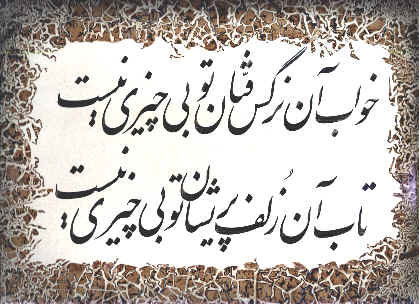 خواب آن نرگس فتّان تو بی چیزی نیست
تاب آن زُلف پریشان تو بی چیزی نیست